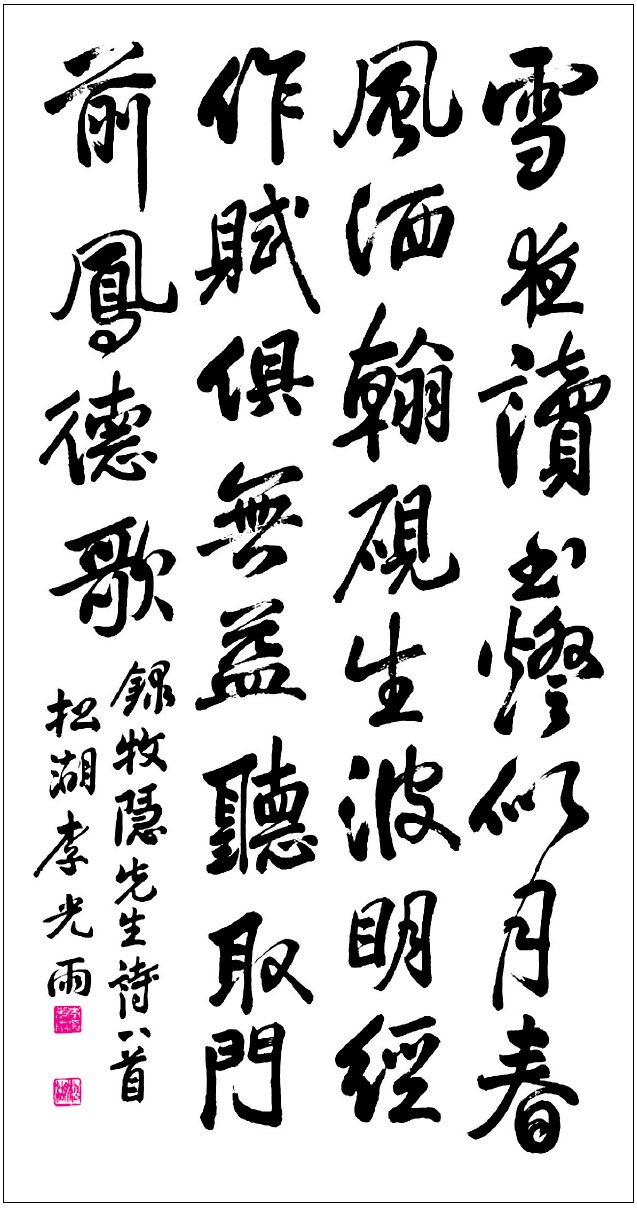 雪夜讀書燈似月春
風洒翰硯生波明經
作賦俱無益聽取門
前鳳德歌
錄牧隱先生詩八首
松湖李光雨